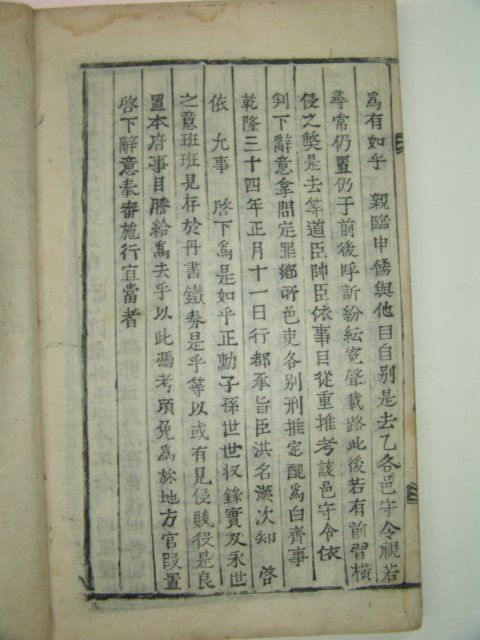 爲有如乎 親臨申飭與他目自別是去乙各邑守令視若
尋常仍置仍于前後呼訴紛紜寃聲載路此後若有前習橫
侵之獘是去等道臣帥臣依事目從重推考該邑守令依
判下辭意拿問定罪鄕所邑吏各別刑推定配爲白齊事
乾隆三十四年正月十一日行都承旨臣洪名漢次知 啓
依 允事 啓下爲是如乎正勳子孫世世收錄實及永世
之意班班見存於丹書鐵券是乎等以或有見侵賤役是良
置本府事目謄給爲去乎以此憑考頉免爲旀地方官段置
啓下辭意奉審施行宜當者